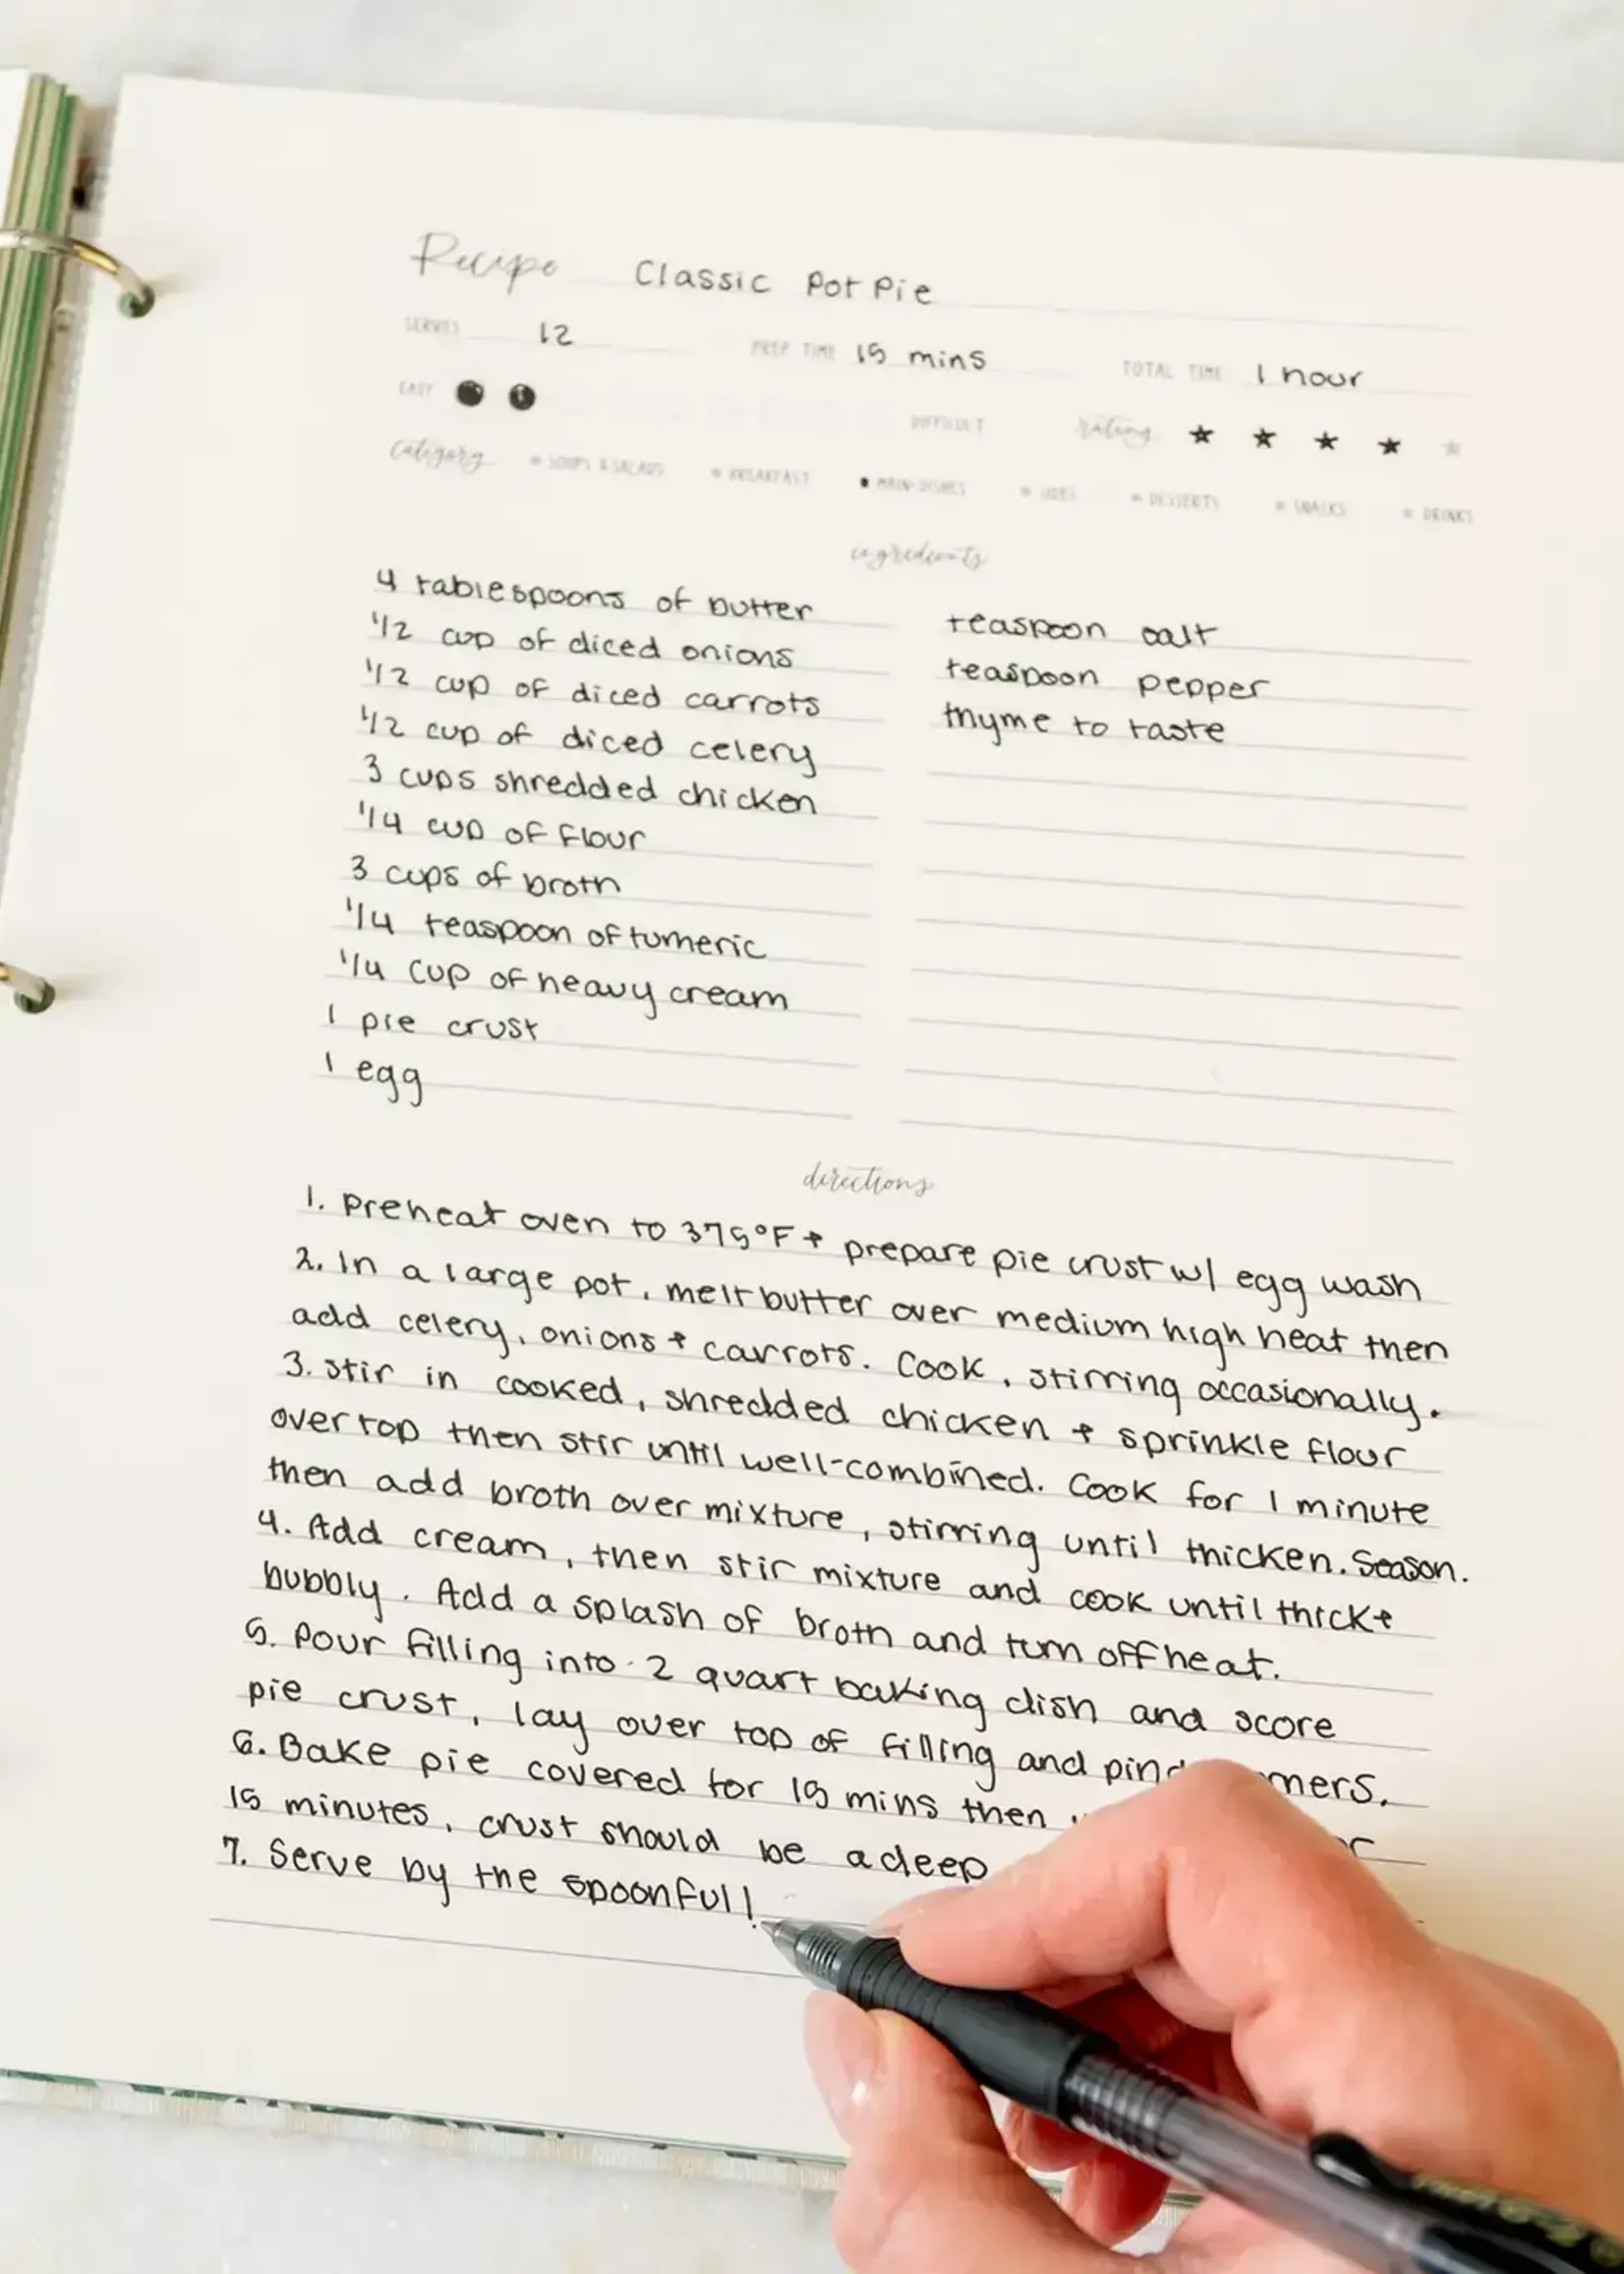 Recipe Classic Pot Pie
SERVES 12 PREP TIME 15 mins TOTAL TIME 1 hour
EASY DIFFICULT rating
Category SOUPS & SALADS BREAKFAST MAIN DISHES SIDES DESSERTS SNACKS DRINKS
ingredients
4 tablespoons of butter
1/2 cup of diced onions
1/2 cup of diced carrots
1/2 cup of diced celery
3 cups shredded chicken
1/4 cup of flour
3 cups of broth
1/4 teaspoon of tumeric
1/4 cup of heavy cream
1 pie crust
1 egg
teaspoon salt
teaspoon pepper
thyme to taste
directions
1. Preheat oven to 375°F + prepare pie crust w/ egg wash
2. In a large pot, melt butter over medium high heat then
add celery, onions + carrots. Cook, stirring occasionally.
3. Stir in cooked, shredded chicken + sprinkle flour
over top then stir until well-combined. Cook for 1 minute
then add broth over mixture, stirring until thicken. Season.
4. Add cream, then stir mixture and cook until thick +
bubbly. Add a splash of broth and turn off heat.
5. Pour filling into 2 quart baking dish and score
pie crust, lay over top of filling and
6. Bake pie covered for 15 mins then
15 minutes, crust should be a deep
7. Serve by the spoonful!